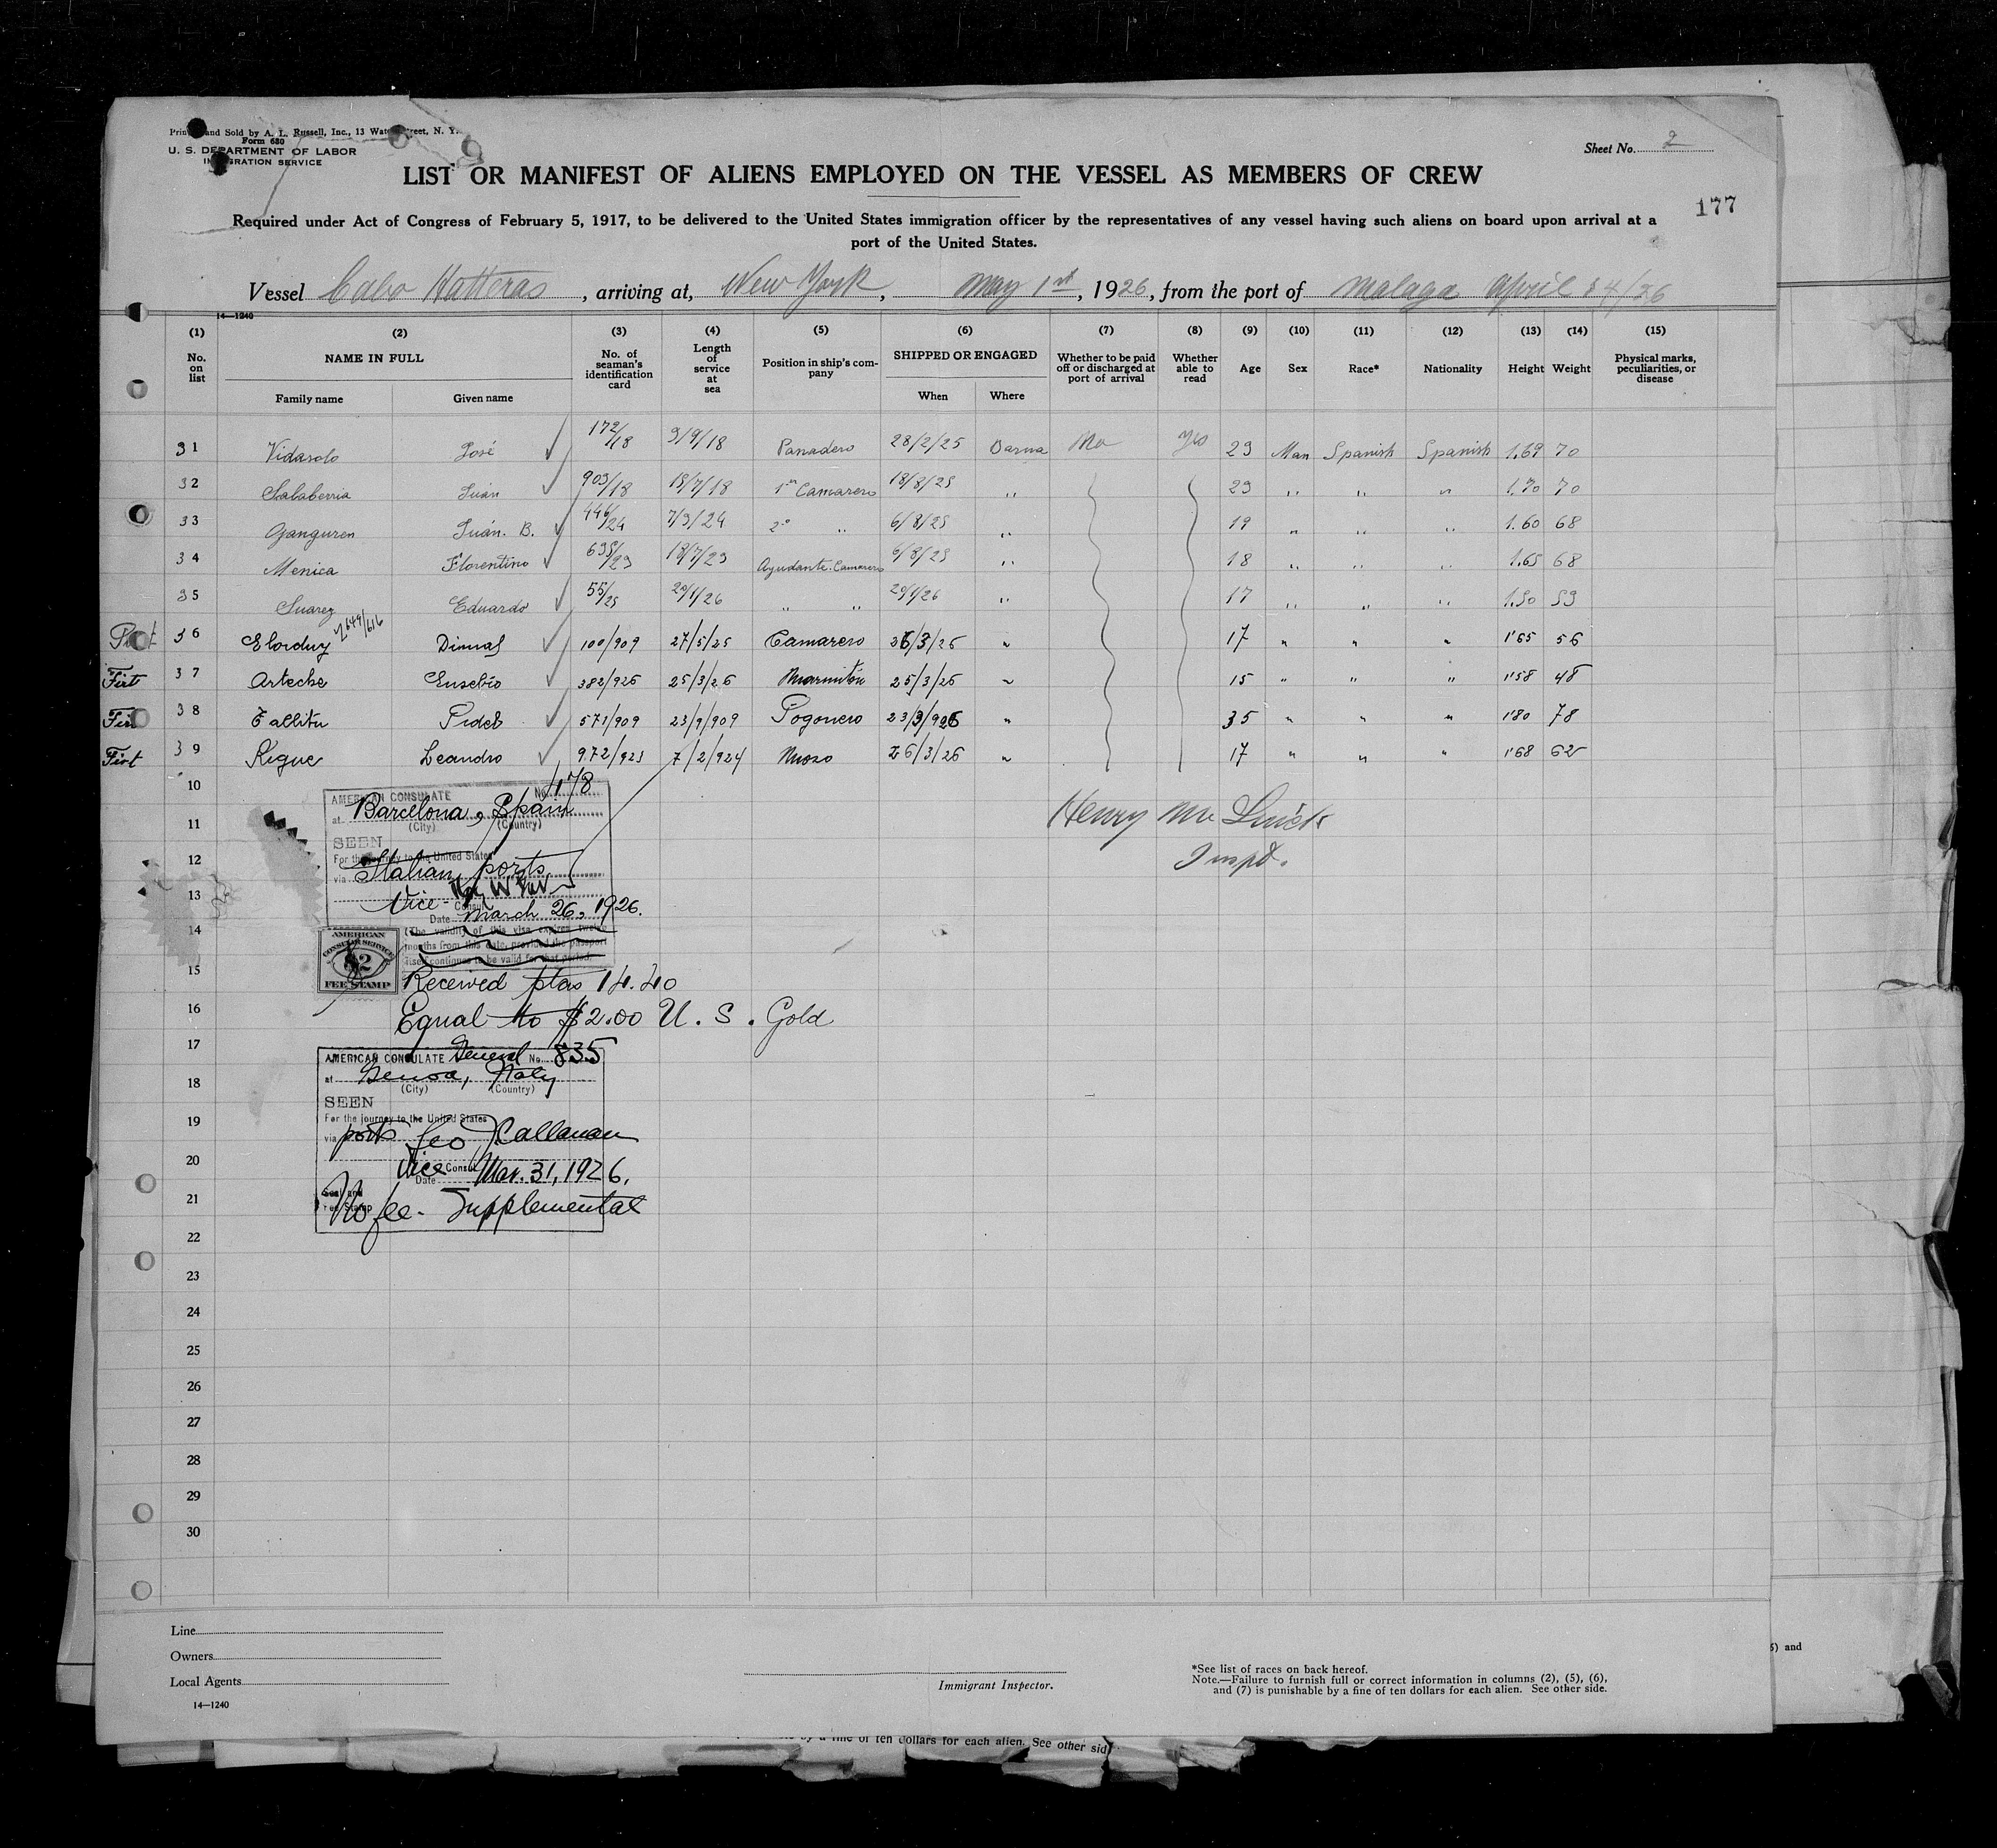 Printed and Sold by A. L. Russell, Inc., 13 Water Street, N. Y.
Form 680
U. S. DEPARTMENT OF LABOR
IMMIGRATION SERVICE
Sheet No. 2
LIST OR MANIFEST OF ALIENS EMPLOYED ON THE VESSEL AS MEMBERS OF CREW
177
Required under Act of Congress of February 5, 1917, to be delivered to the United States immigration officer by the representatives of any vessel having such aliens on board upon arrival at a
port of the United States.
Vessel Cabo Hatteras, arriving at, New York, May 1st, 1926, from the port of Malaga April 14/26
14—1240
(1) (2) (3) (4) (5) (6) (7) (8) (9) (10) (11) (12) (13) (14) (15)
No. on list NAME IN FULL No. of seaman's identification card Length of service at sea Position in ship's company SHIPPED OR ENGAGED Whether to be paid off or discharged at port of arrival Whether able to read Age Sex Race* Nationality Height Weight Physical marks, peculiarities, or disease
Family name Given name When Where
31 Vidasolo José 172/18 3/9/18 Panadero 28/2/25 Darna No Yes 23 Man Spanish Spanish 1.69 70
32 Salaberria Juan 903/18 18/7/18 1er Camarero 18/8/25 " 23 " " " 1.70 70
33 Ganguren Juán. B. 446/24 7/3/24 2º " 6/8/25 " 19 " " " 1.60 68
34 Menica Florentino 635/23 18/7/23 Ayudante Camarero 6/8/25 " 18 " " " 1.65 68
35 Suarez Eduardo 55/25 29/1/26 " " 29/1/26 " 17 " " " 1.50 53
36 Elorduy 649/616 Dimas 100/909 27/5/25 Camarero 26/3/26 " 17 " " " 1'65 56
First 37 Arteche Eusebio 382/926 25/3/26 Marmiton 25/3/26 " 15 " " " 1'58 48
38 Fidel 571/909 23/9/909 Fogonero 23/3/926 " 35 " " " 1'80 78
First 39 Rigue Leandro 972/923 7/2/924 Mozo 26/3/26 " 17 " " " 1'68 62
10
AMERICAN CONSULATE No. 478
at Barcelona, Spain
(City) (Country)
11
Henry
SEEN
12
Inspt.
For the journey to the United States
via Italian ports
13
Vice-Consul
Date March 26, 1926.
14
(The validity of this visa expires twelve
months from this date, provided the passport
itself continues to be valid for that period.
AMERICAN
CONSULAR SERVICE
$2
FEE STAMP
15
Received ptas 14.40
16
Equal to $2.00 U. S. Gold
17
AMERICAN CONSULATE General No. 835
18
at Genoa, Italy
(City) (Country)
SEEN
19
For the journey to the United States
via ports Geo J Callanan
20
Vice Consul
Date Mar. 31, 1926.
21
Seal and
Fee Stamp
No fee. Supplemental
22
23
24
25
26
27
28
29
30
Line
Owners
Local Agents
14—1240
Immigrant Inspector.
*See list of races on back hereof.
Note.—Failure to furnish full or correct information in columns (2), (5), (6),
and (7) is punishable by a fine of ten dollars for each alien. See other side.
) and
by a fine of ten dollars for each alien. See other sid